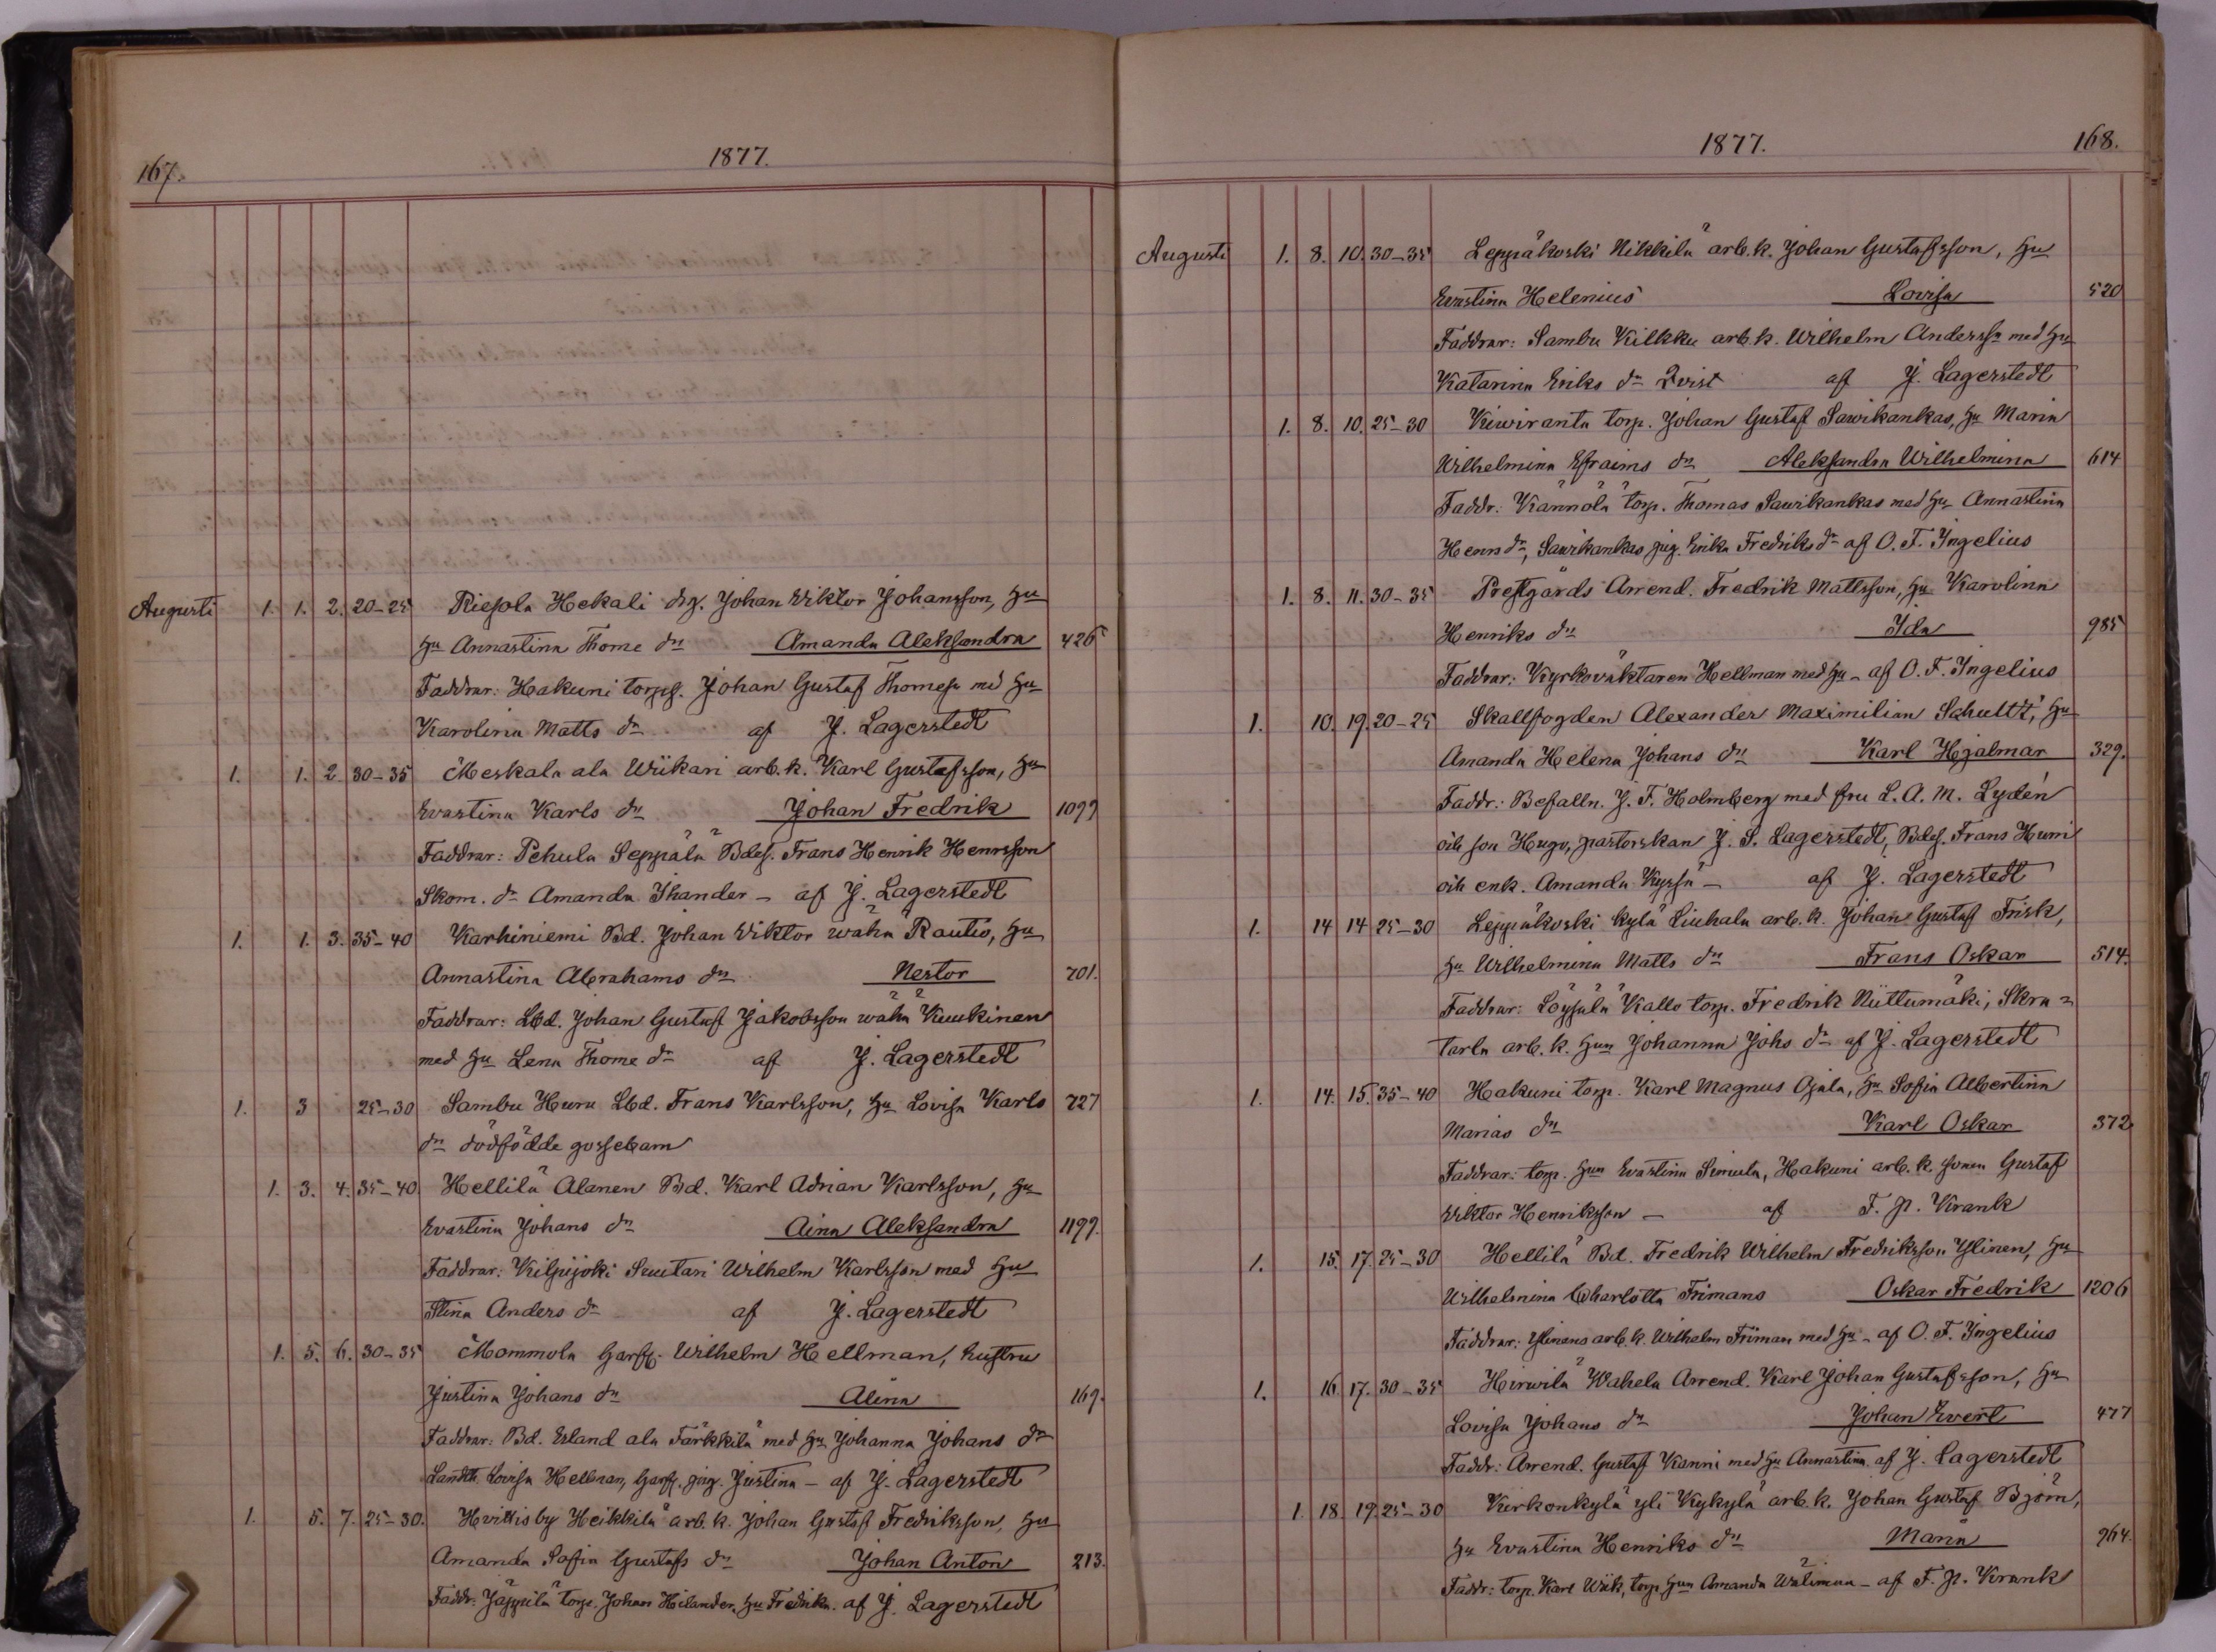 167. 1877.
Augusti 1. 1. 2. 20-25 Riesola Hekali drg. Johan Viktor Johansson, hu
hu Annastina Thome dr Amanda Aleksandra 426
Faddrar: Hakuni Johan Gustaf Thomess med hu
Karolina Matts dr af J. Lagerstedt
1. 1. 2. 30-35 Meskala ala Wiikari arb. k. Karl Gustafsson, hu
Evastina Karls dr Johan Fredrik 1099
Faddrar: Pehula Seppälä Bdes. Frans Henrik Henrsson
Skom. dr Amanda Ihander - af J. Lagerstedt
1. 1. 3. 35-40 Karhiniemi Bd. Johan Viktor wähä Rautio, hu
Annastina Abrahams dr Nestor 701.
Faddrar: Lbd. Johan Gustaf Jakobsson wähä Kuukinen
med hu Lena Thome dr af J. Lagerstedt
1. 3 25-30 Sambu Huru Lbd. Frans Karlsson, hu Lovisa Karls 727
dr dödfödde gossebarn
1. 3. 4. 35-40 Hellilä Alanen Bd. Karl Adrian Karlsson, hu
Evastina Johans dr Aina Aleksandra 1199.
Faddrar: Kilpijoki Suutari Wilhelm Karlsson med hu
Stina Anders dr af J. Lagerstedt
1. 5. 6. 30-35 Mommola Garff. Wilhelm Hellman, hustru
Justina Johans dr Alina 169.
Faddrar: Bd. Erland ala Färkkilä med hu Johanna Johans dr
Lovisa Hellman, Garff. pig. Justina - af J. Lagerstedt
1. 5. 7. 25-30. Hvittis by Heikkilä arb. k. Johan Gustaf Fredriksson, hu
Amanda Sofia Gustafs dr Johan Anton 213.
Faddr: Jäppilä torp. Johan Helander, hu Fredrika. af J. Lagerstedt
1877. 168.
Augusti 1. 8. 10. 30-35 Leppäkoski Nikkilä arb. k. Johan Gustafsson, hu
Evastina Helenius Lovisa 520
Faddrar: Sambu Kilkku arb. k. Wilhelm Anderssn med hu
Katarina Eriks dr Qvist af J. Lagerstedt
1. 8. 10. 25-30 Kiviranta torp. Johan Gustaf Sawikankas, hu Maria
Wilhelmina Efraims dr Aleksandra Wilhelmina 614
Faddr: Kännölä torp. Thomas Sawikankas med hu Annastina
Henrs dr, Sawikankas pig. Erika Fredriks dr af O. F. Ingelius
1. 8. 11. 30-35 Prestgårds Arrend. Fredrik Mattsson, hu Karolina
Henriks dr Ida 985
Faddrar: Kyrkoväktaren Hellman med hu - af O. F. Ingelius
1. 10. 19. 20-25 Skallfogden Alexander Maximilian Schultt, hu
Amanda Helena Johans dr Karl Hjalmar 329.
Faddr: Befalln. J. F. Holmberg med fru L. A. M. Lydén
och son Hugo, pastorskan J. S. Lagerstedt, Bdes. Frans Humi
och enk. Amanda Kyssä - af J. Lagerstedt
1. 14 14 25-30 Leppäkoski kylä Liuhala arb. k. Johan Gustaf Frisk,
hu Wilhelmina Matts dr Frans Oskar 514.
Faddrar: Löysälä Kallo torp. Fredrik Niittumäki, Skra=
tarla arb. k. hun Johanna Johs dr af J. Lagerstedt
1. 14. 15. 35-40 Hakuni torp. Karl Magnus Ojala, hu Sofia Albertina
Marias dr Karl Oskar 372
Faddrar: torp. hun Evastina Simula, Hakuni arb. k. sonen Gustaf
Viktor Henriksson - af F. P. Krank
1. 15. 17. 25-30 Hellilä Bd. Fredrik Wilhelm Fredriksson Ylinen, hu
Wilhelmina Charlotta Frimans Oskar Fredrik 1206
Faddrar: Ylinens arb. k. Wilhelm Friman med hu - af O. F. Ingelius
1. 16. 17. 30-35 Hirwilä Wahela Arrend. Karl Johan Gustafsson, hu
Lovisa Johans dr Johan Evert 477
Faddr: Arrend. Gustaf Kanni med hu Annastina af J. Lagerstedt
1. 18. 19. 25-30 Kirkonkylä yli Kykylä arb. k. Johan Gustaf Björn,
hu Evastina Henriks dr Maria 964.
Faddr: torp. Karl Wiik, torp. hun Amanda Wälimaa - af F. P. Krank